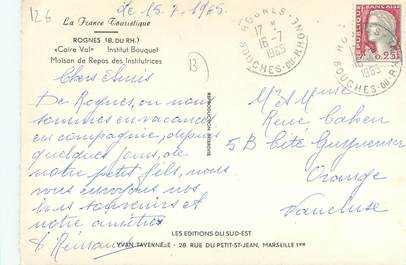 126
Le 15.7.1965.
La France Touristique
ROGNES (B. DU RH.)
«Caire Val» Institut Bouquet
Maison de Repos des Institutrices
13
Chers Amis
De Rognes, où nous
sommes en vacances
en compagnie, depuis
quelques jours, de
notre petit fils, nous
vous envoyons nos
bons souvenirs et
notre amitié
REPRODUCTION INTERDITE
LES EDITIONS DU SUD-EST
YVAN TAVERNÈLE - 28, RUE DU PETIT-ST-JEAN, MARSEILLE 1er
ROGNES
17 H
16-7
1965
BOUCHES-DU-RHONE
0,25
1965
BOUCHES-DU-RHONE
M. et Mme
René Cohen
5 B Cité
Orange
Vaucluse